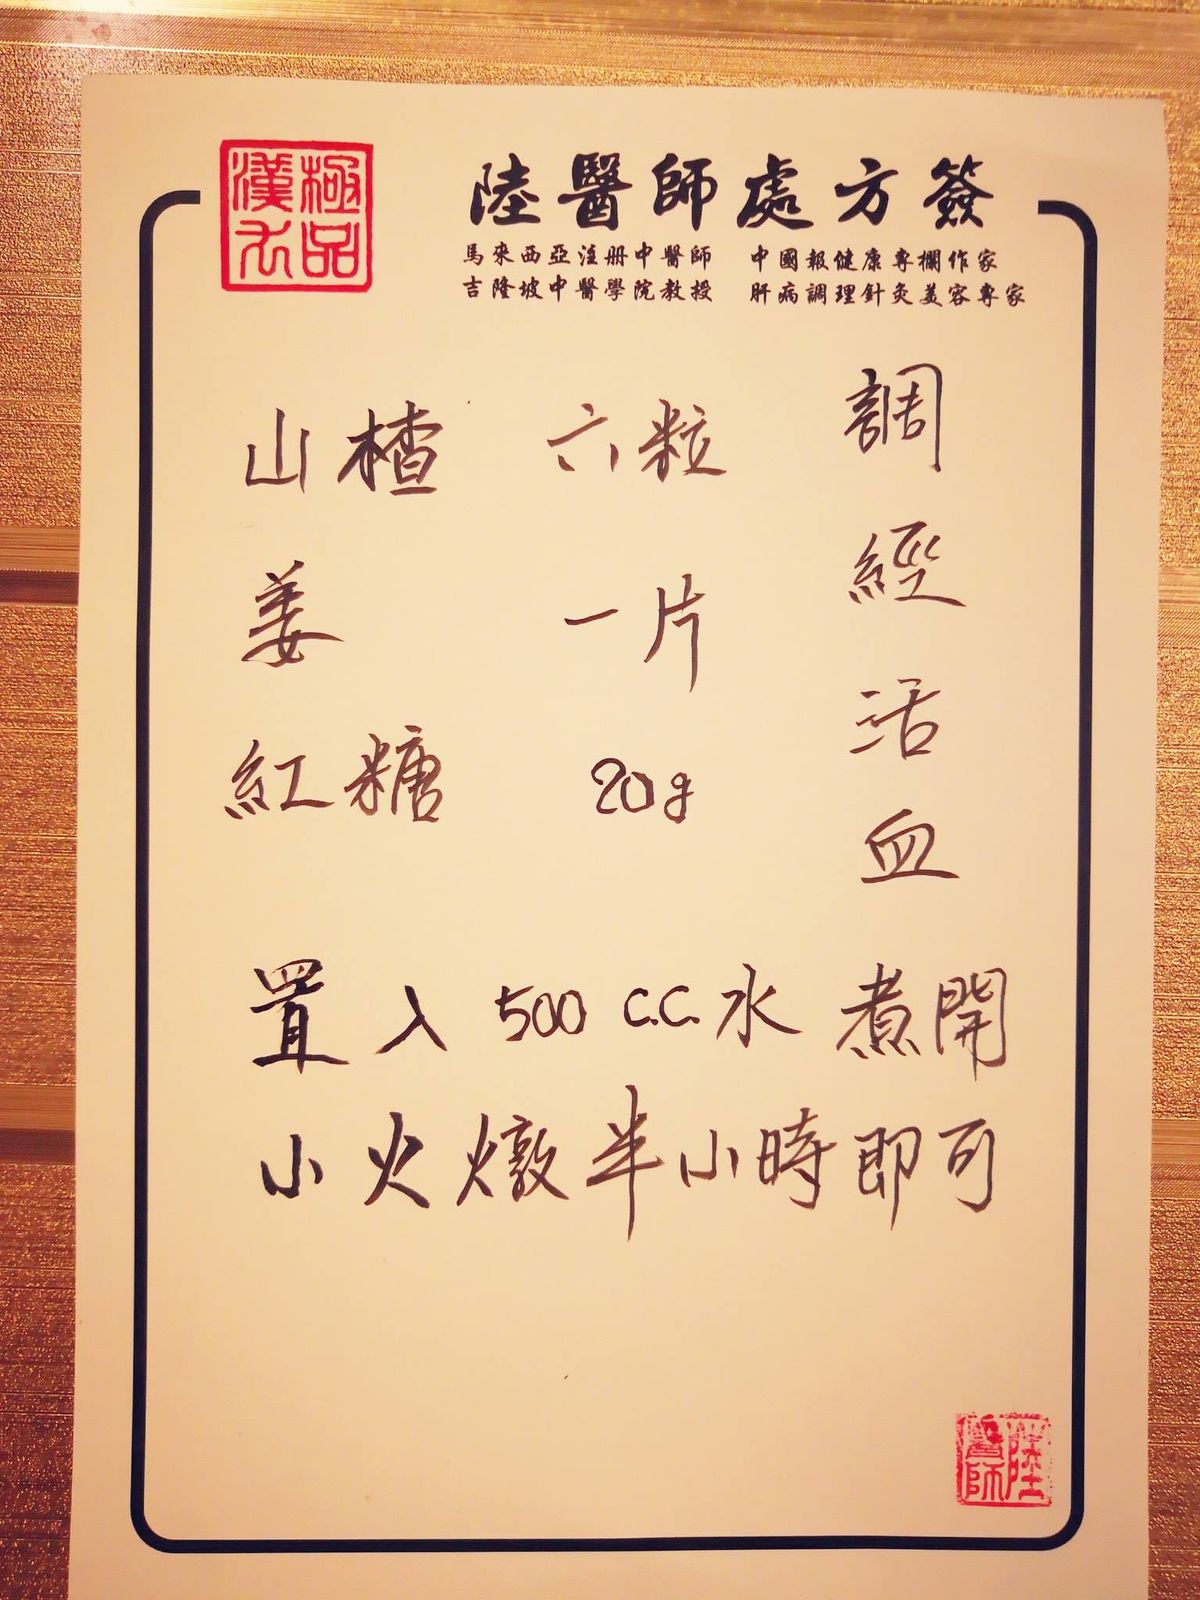 極品漢方
陸醫師處方簽
馬來西亞注册中醫師 中國報健康專欄作家
吉隆坡中醫學院教授 肝病調理針灸美容專家
調經活血
山楂 六粒
姜 一片
紅糖 20g
置入500 C.C.水煮開
小火燉半小時即可
陸醫師